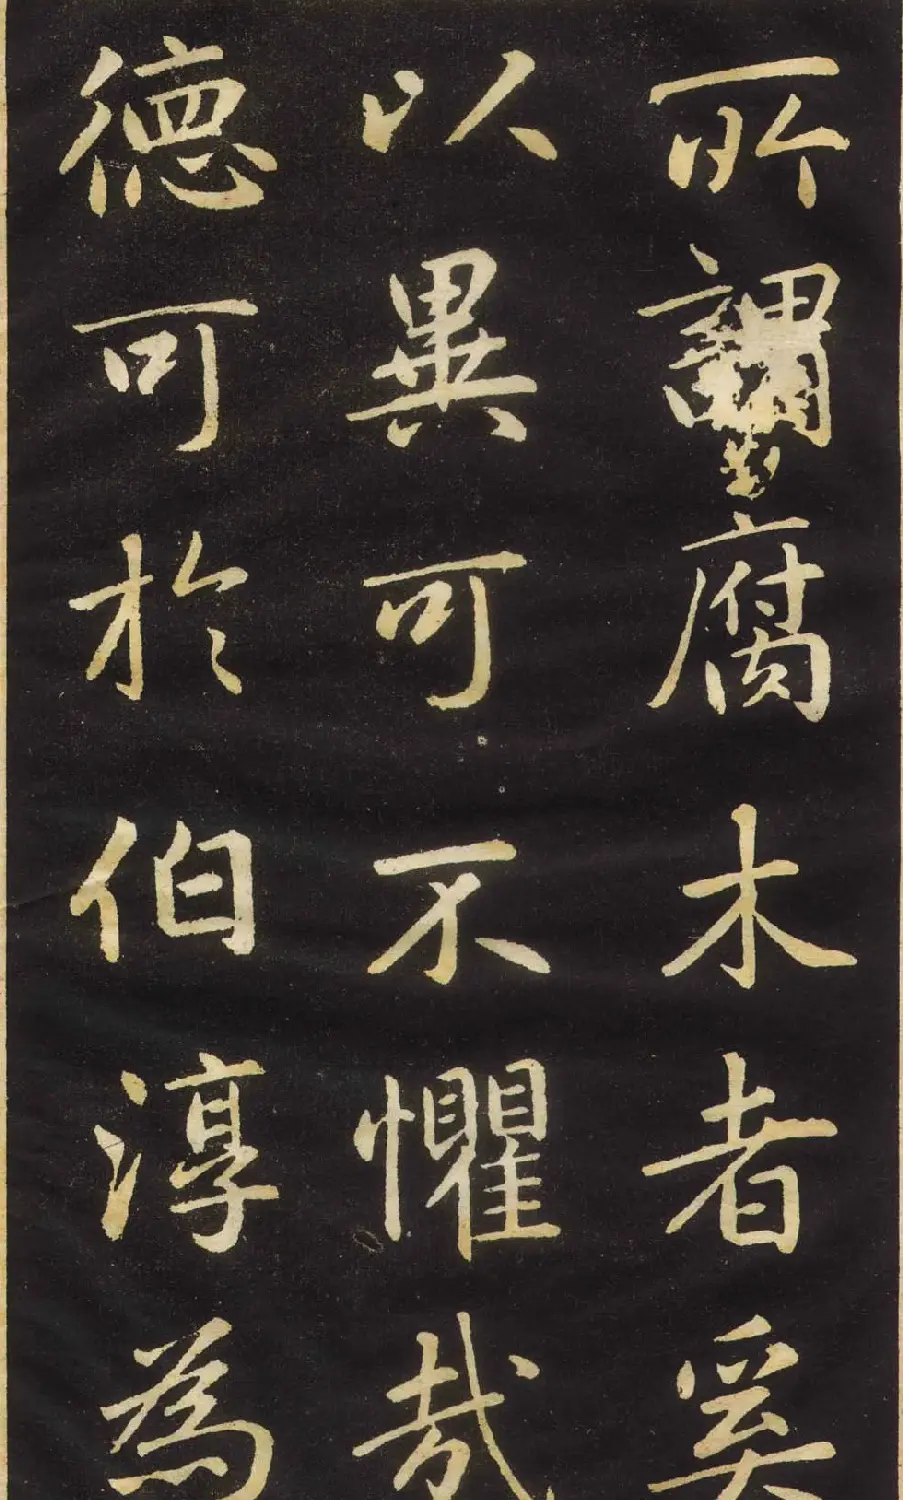 所謂腐木者奚
以異可不懼哉
德可於伯淳為